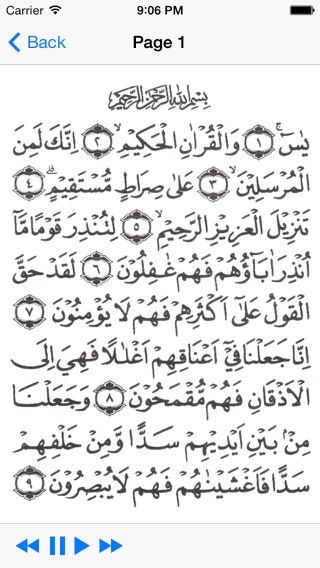 Carrier 9:06 PM
Back Page 1
بِسْمِ اللهِ الرَّحْمٰنِ الرَّحِيْمِ
يٰسٓ ۚ ﴿١﴾ وَالْقُرْاٰنِ الْحَكِيْمِ ۙ ﴿٢﴾ اِنَّكَ لَمِنَ
الْمُرْسَلِيْنَ ۙ ﴿٣﴾ عَلٰى صِرَاطٍ مُّسْتَقِيْمٍ ؕ ﴿٤﴾
تَنْزِيْلَ الْعَزِيْزِ الرَّحِيْمِ ۙ ﴿٥﴾ لِتُنْذِرَ قَوْمًا مَّاۤ
اُنْذِرَ اٰبَآؤُهُمْ فَهُمْ غٰفِلُوْنَ ﴿٦﴾ لَقَدْ حَقَّ
الْقَوْلُ عَلٰۤى اَكْثَرِهِمْ فَهُمْ لَا يُؤْمِنُوْنَ ﴿٧﴾
اِنَّا جَعَلْنَا فِيْۤ اَعْنَاقِهِمْ اَغْلٰلًا فَهِيَ اِلَى
الْاَذْقَانِ فَهُمْ مُّقْمَحُوْنَ ﴿٨﴾ وَجَعَلْنَا
مِنْۢ بَيْنِ اَيْدِيْهِمْ سَدًّا وَّمِنْ خَلْفِهِمْ
سَدًّا فَاَغْشَيْنٰهُمْ فَهُمْ لَا يُبْصِرُوْنَ ﴿٩﴾